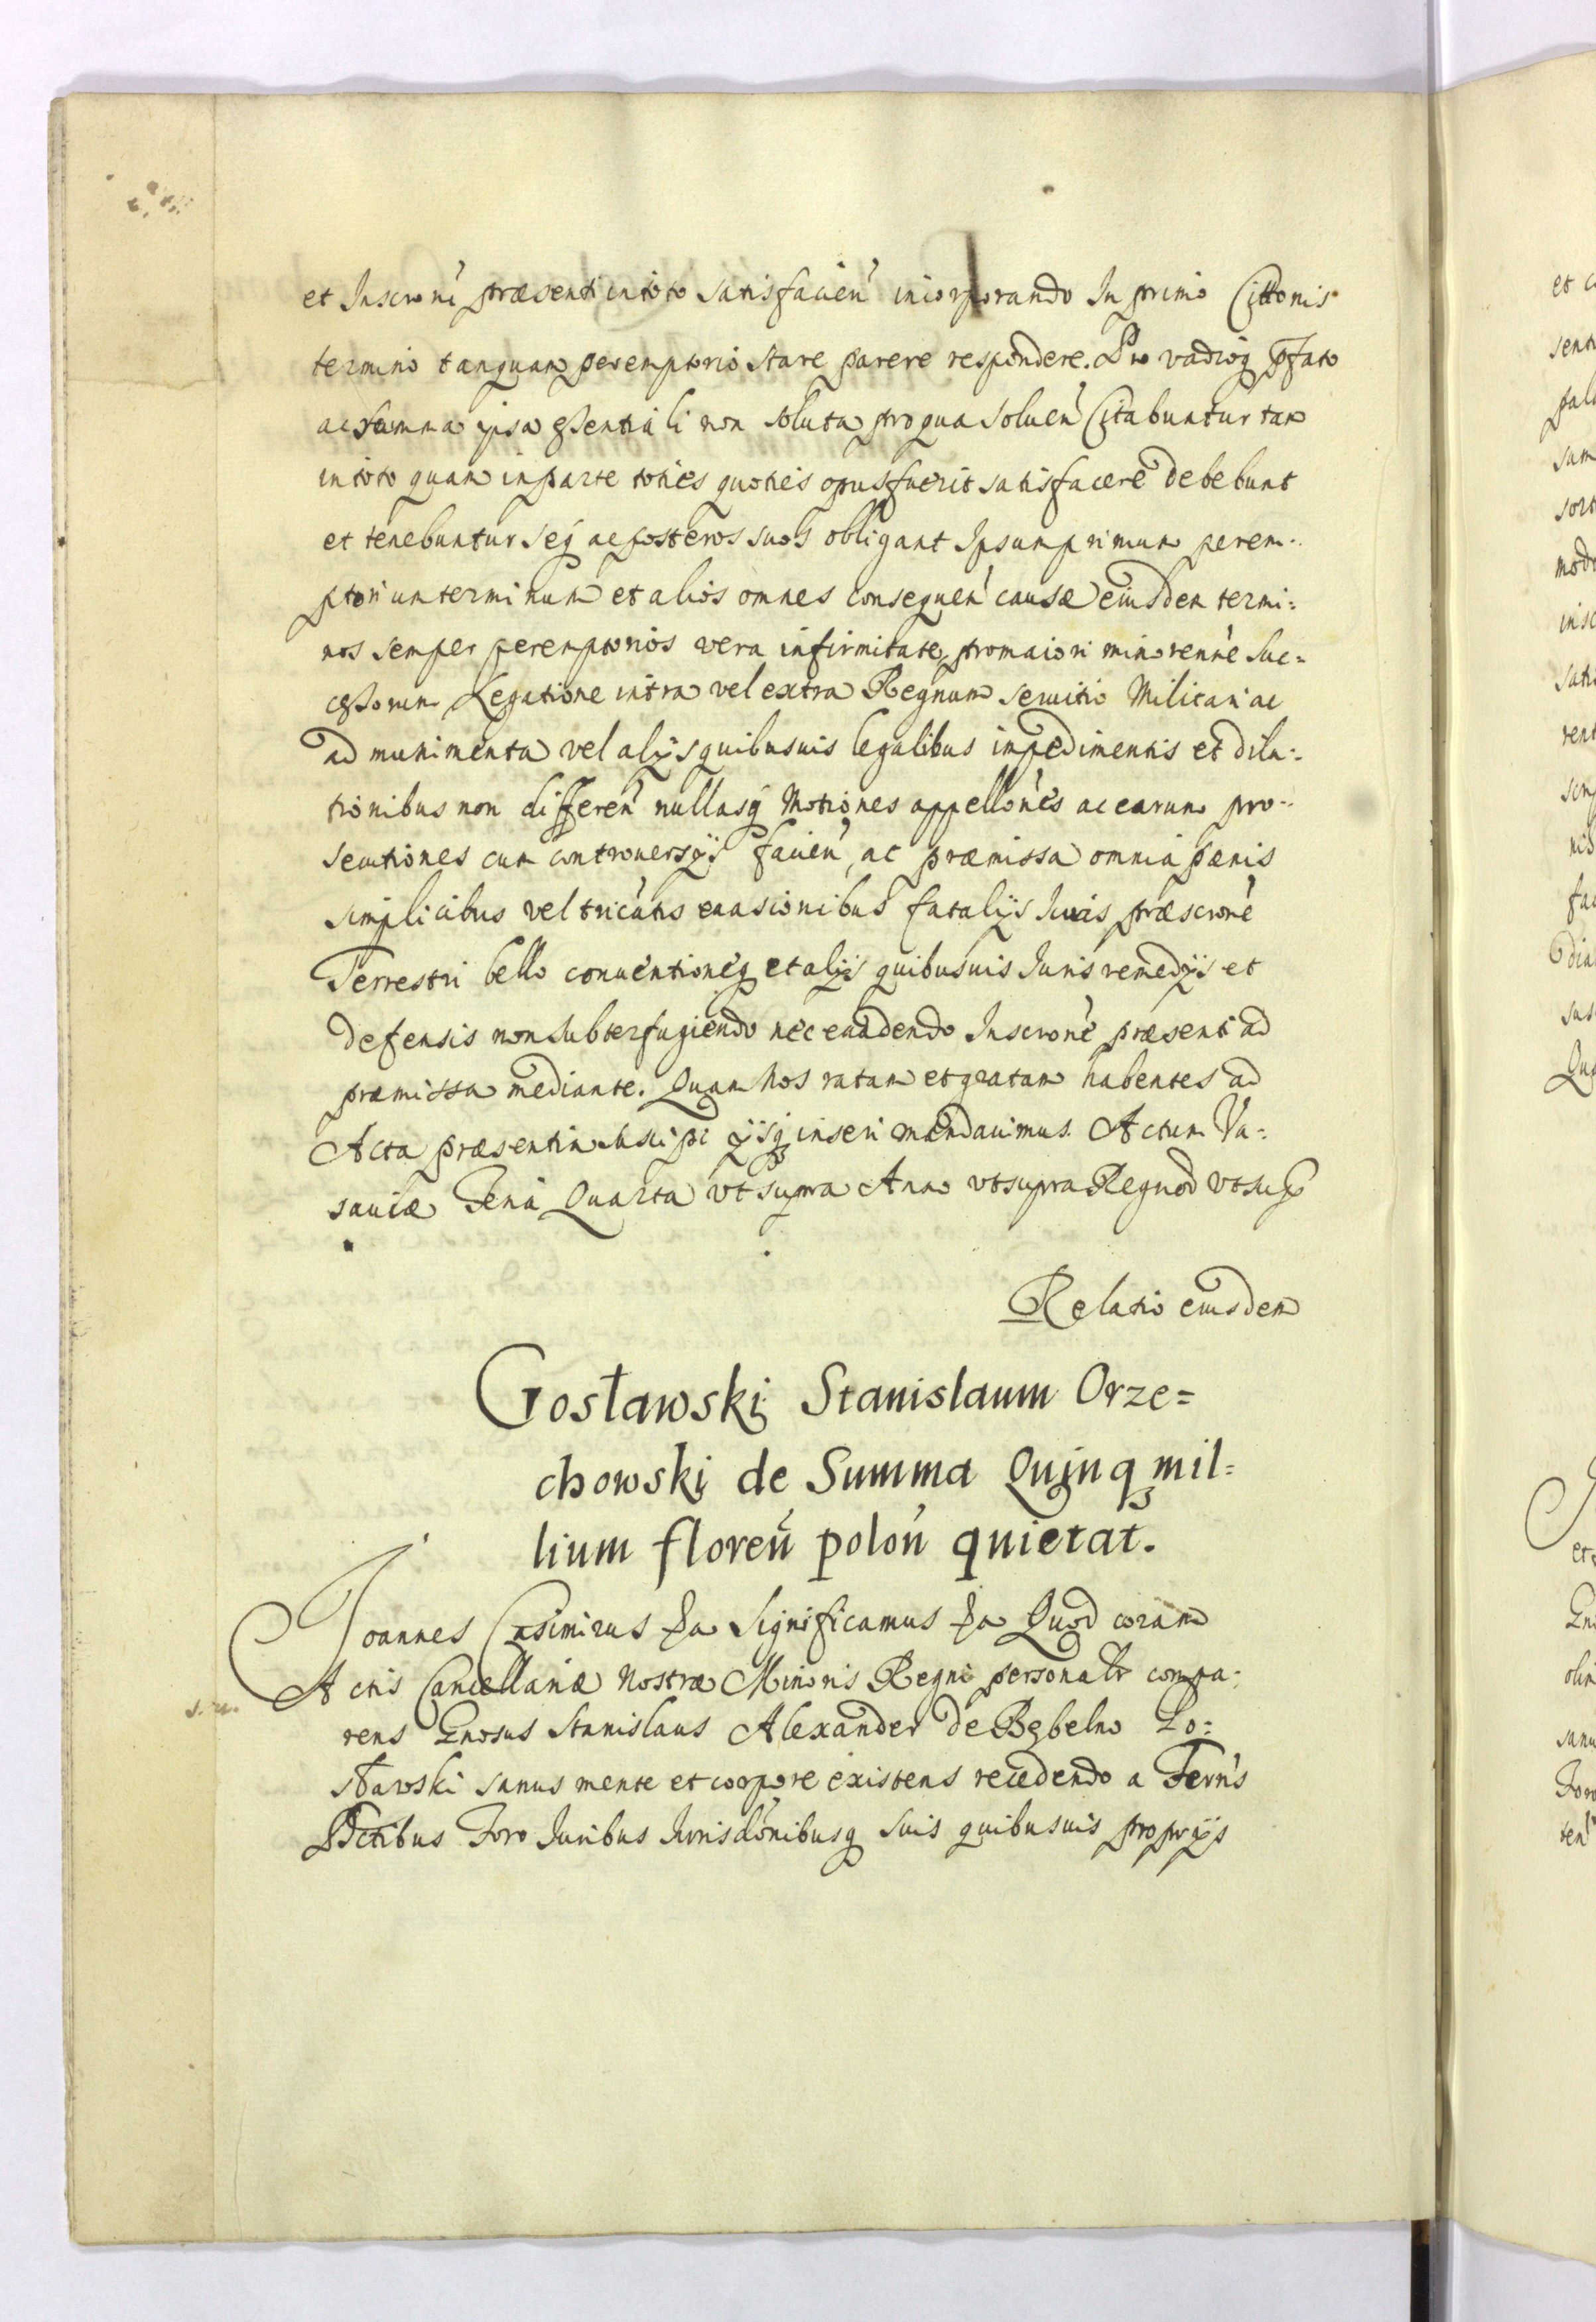 et Inscroni præsenti in toto satisfacien incorporando In primo Cittonis
termino tanquam peremptorio stare parere respondere. Pro vadioq pfato
ac summa ipsa essentiali non soluta pro qua soluen Citabuntur tam
in toto quam in parte toties quoties opus fuerit satisfacere debebunt
et tenebuntur seq ac posteros suos obligant Ipsum primum perem=
ptorium terminum et alios omnes consequen causæ eiusdem termi=
nos semper peremptorios vera infirmitate pro maiori minorenne Suc=
cessorum Legatione intra vel extra Regnum seruitio Militari ac
ad munimenta vel alijs quibusuis legalibus impedimentis et dila=
tionibus non differen nullasq Motiones appellones ac earum pro=
secutiones cum controuersijs facien, ac præmissa omnia pænis
simplicibus vel tricatis euasionibus fatalijs Iuris præscrone
Terrestri bello conuentioneq et alijs quibusuis Iuris remedijs et
defensis non subterfugiendo nec euadendo Inscrone præsenti ad
præmissa mediante. Quam Nos ratam et gratam habentes ad
Acta præsentia suscipi ijsq inseri mandauimus. Actum Va=
sauiæ Feria Quarta vt supra Anno vt supra Regnoq vt sup
Relatio eiusdem
Gosławski Stanislaum Orze=
chowski de Summa Quinq mil=
lium floren polon quietat.
Joannes Casimirus &a Significamus &a Quod coram
Actis Cancellariæ Nostræ Minoris Regni personalr compa=
rens Gnosus Stanislaus Alexander de Bębelno Go=
sławski sanus mente et corpore existens recedendo a Terris
Dctibus Foro Iuribus Iurisdonibusq suis quibusuis proprijs